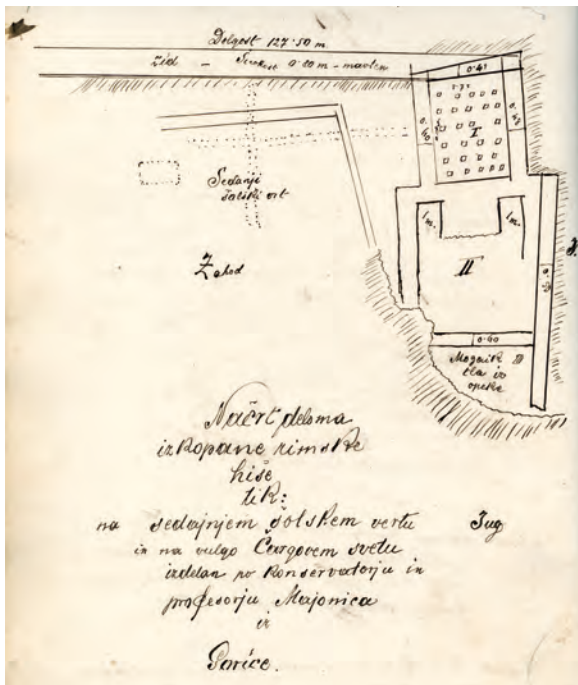 Dolgost 127·50 m.
Zid – 0·60 m –
0·45
I
0·60
Sedanji
šolski vrt
1m.
1m.
Zahod
II
0·60
Mozaik III
tla iz
opeke
Načrt deloma
izkopane rimske
hiše
tik:
na sedajnjem šolskem vertu Jug
in na vulgo Čargovem svetu
izdelan po Konservatorju in
profesorju Majonica
iz
Gorice.